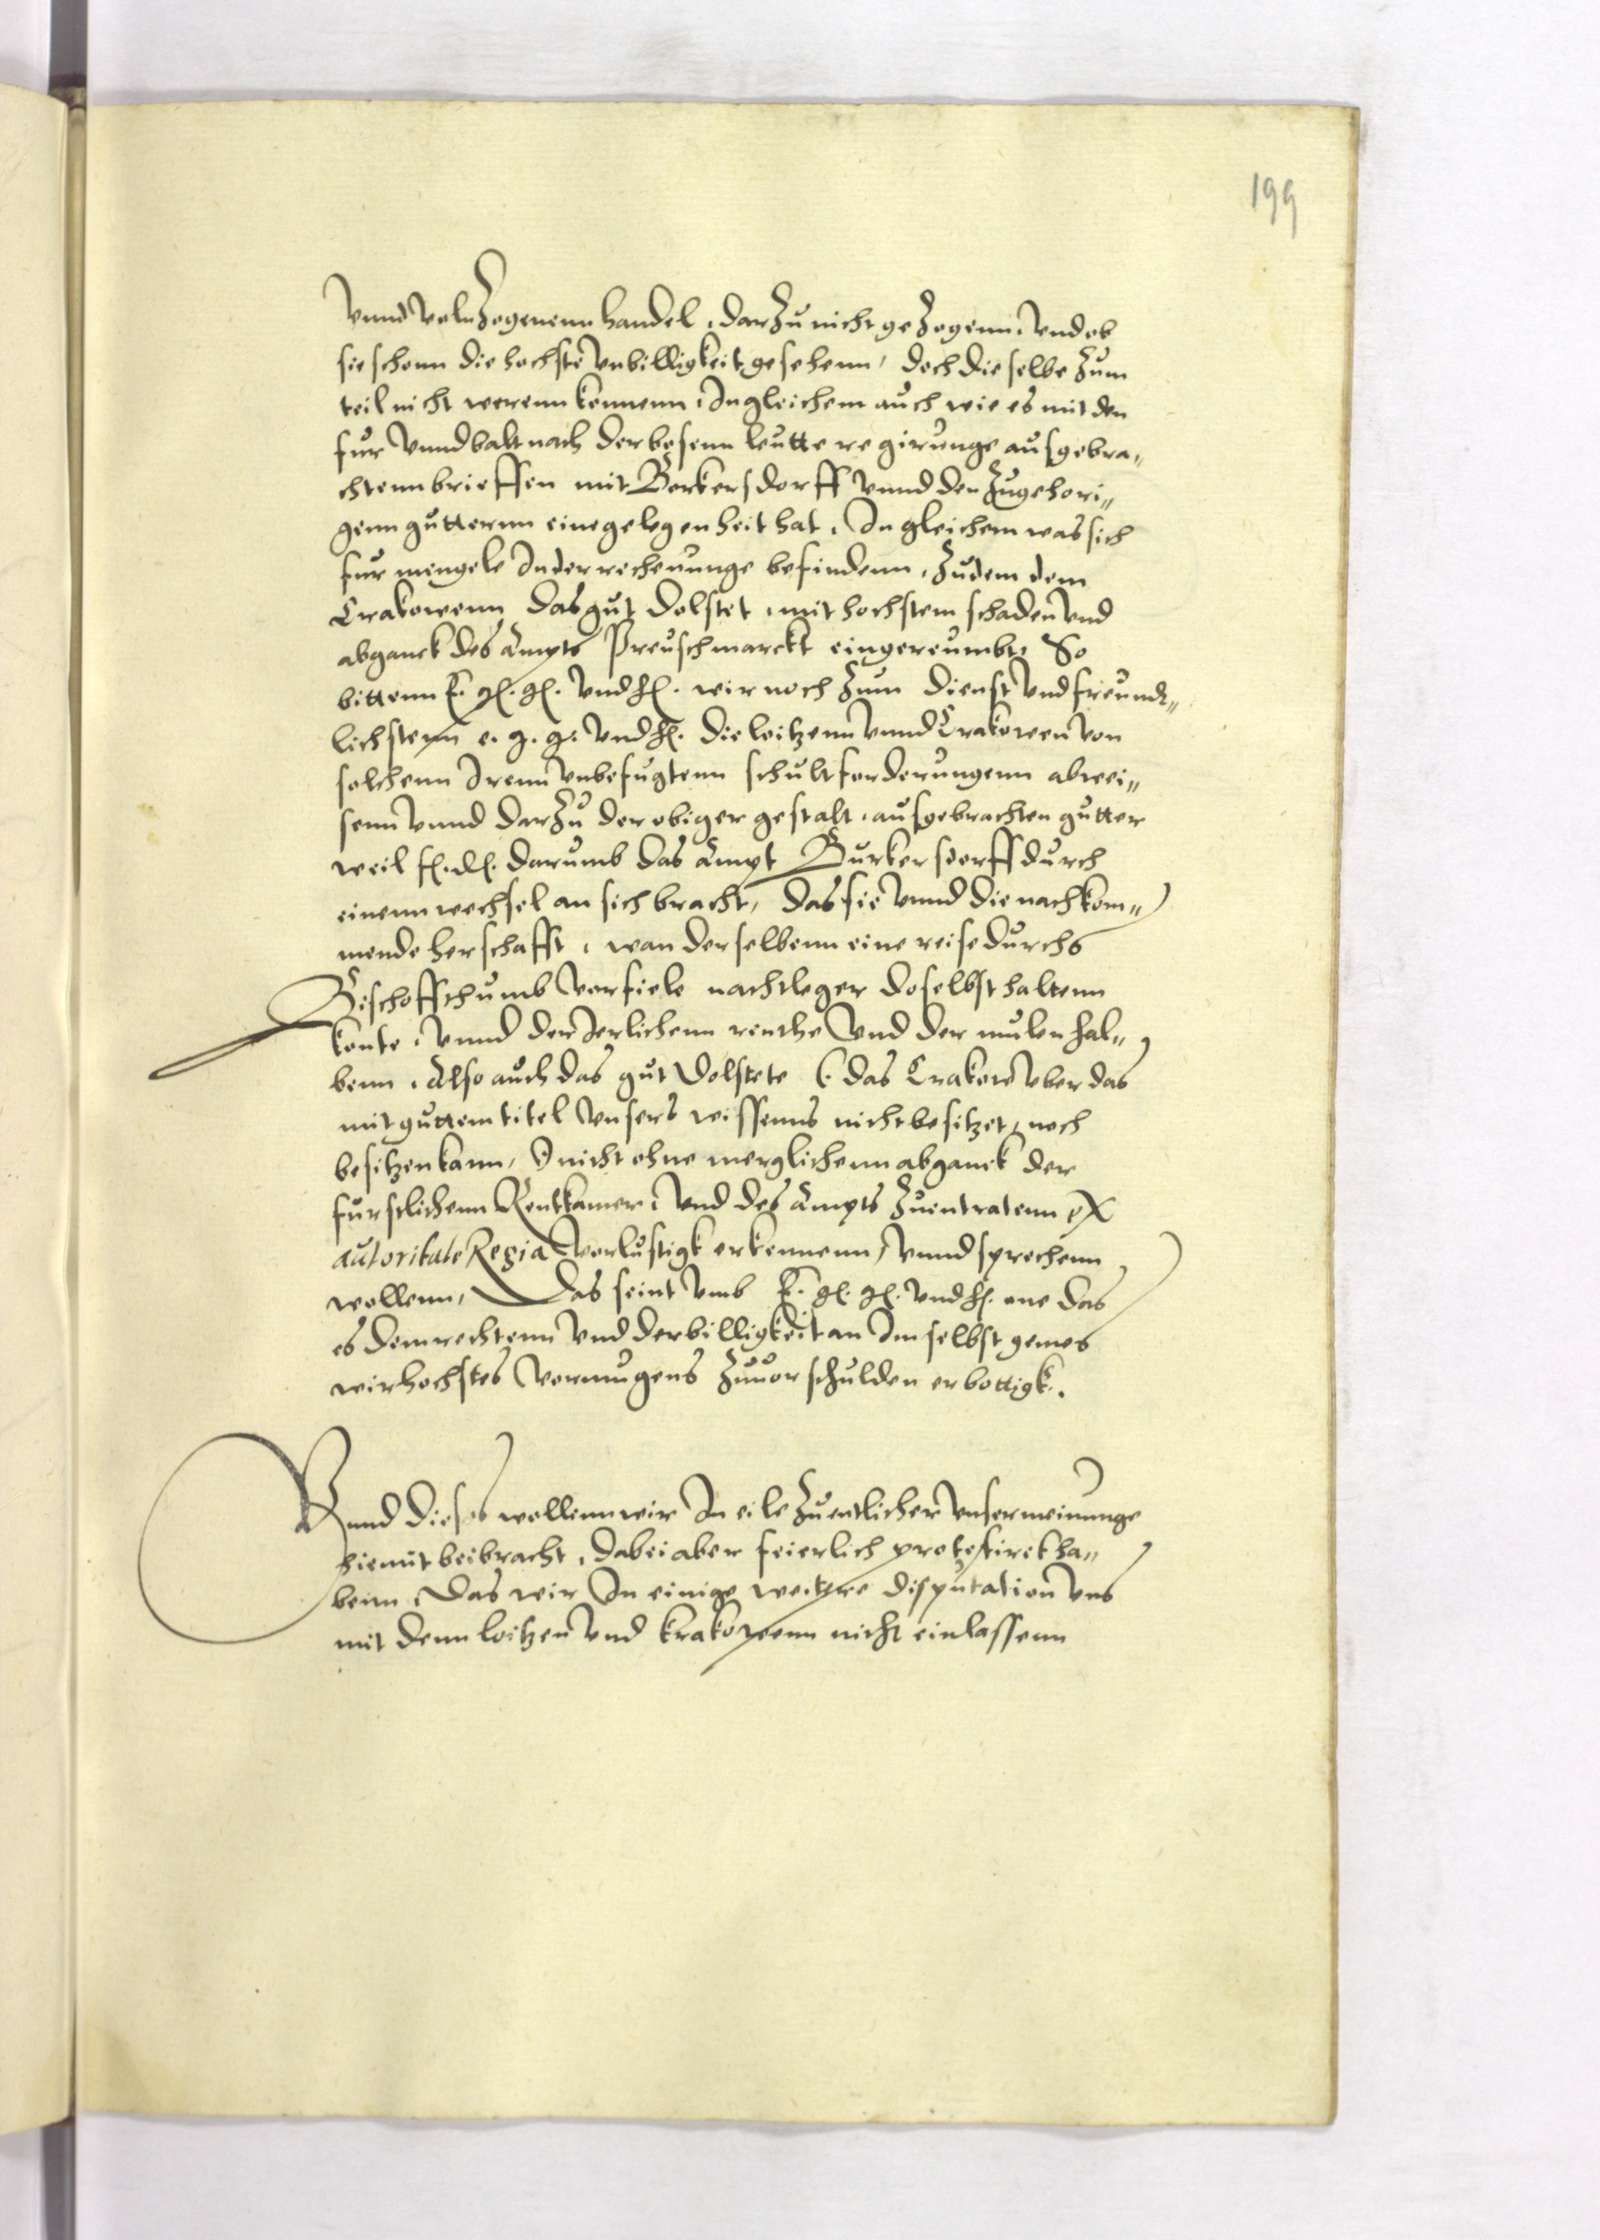 199
vnnd volnzogenenn handel, darzu nicht gezogenn, vnd ob
sie schonn die hochste vnbilligkeit gesehenn, doch dieselbe zum
teil nicht werenn konnenn, In gleichem auch wie es mit den
fur vnnd balt nach der bosenn leutte regirunge ausgebra„
chtenn brieffen mit Borkersdorff vnnd den zugehori„
genn gutternn eine gelegenheit hat, In gleichem was sich
fur mengele In der rechenunge befindenn, zudem dem
Crakowenn das gut dolstet, mit hochstem schaden vnd
abganck des Ampts Preuschmarckt eingereumbt, So
bittenn E. gl. gl. vnd fl. wir noch zum dienst vnd freundt„
lichstenn e. g. g. vnd fl. die loitzenn vnnd Crakowen von
solchenn Irenn vnbefugtenn schultforderungenn abwei„
senn vnnd darzu der obiger gestalt, ausgebrachten gutter
weil fl. dl. darumb das Ampt Burkersdorff durch
einenn wechsel an sich bracht, das sie vnnd die nachkom„
mende herschafft, wan derselbenn eine reise durchs
Bischoffthumb vorfiele nachtleger doselbst haltenn
konte, vnnd der Jerlichenn renthe vnd der mulen hal„
benn, Also auch das gut Dolstete (: das Crakow vber das
mit guttem titel vnsers wissenns nicht besitzet, noch
besitzen kann, :) nicht ohne merglichenn abganck der
furstlichenn Rentkamer, vnd des Ampts zuentratenn ex
autoritate Regia vorlustigk erkennenn, vnnd sprechenn
wollenn, Das seint vmb E. gl. gl. vnd fl. one das
es dem rechtenn vnd der billigkeit an Im selbst gemes
wir hochstes vormugens zuuorschulden erbottigk.
Vnnd dieses wollenn wir In eile zuentlicher vnser meinunge
hiemit beibracht, dabei aber feierlich protestiret ha„
benn, Das wir In einige weittere disputation vns
mit denn loitzen vnd krakowenn nicht einlassenn